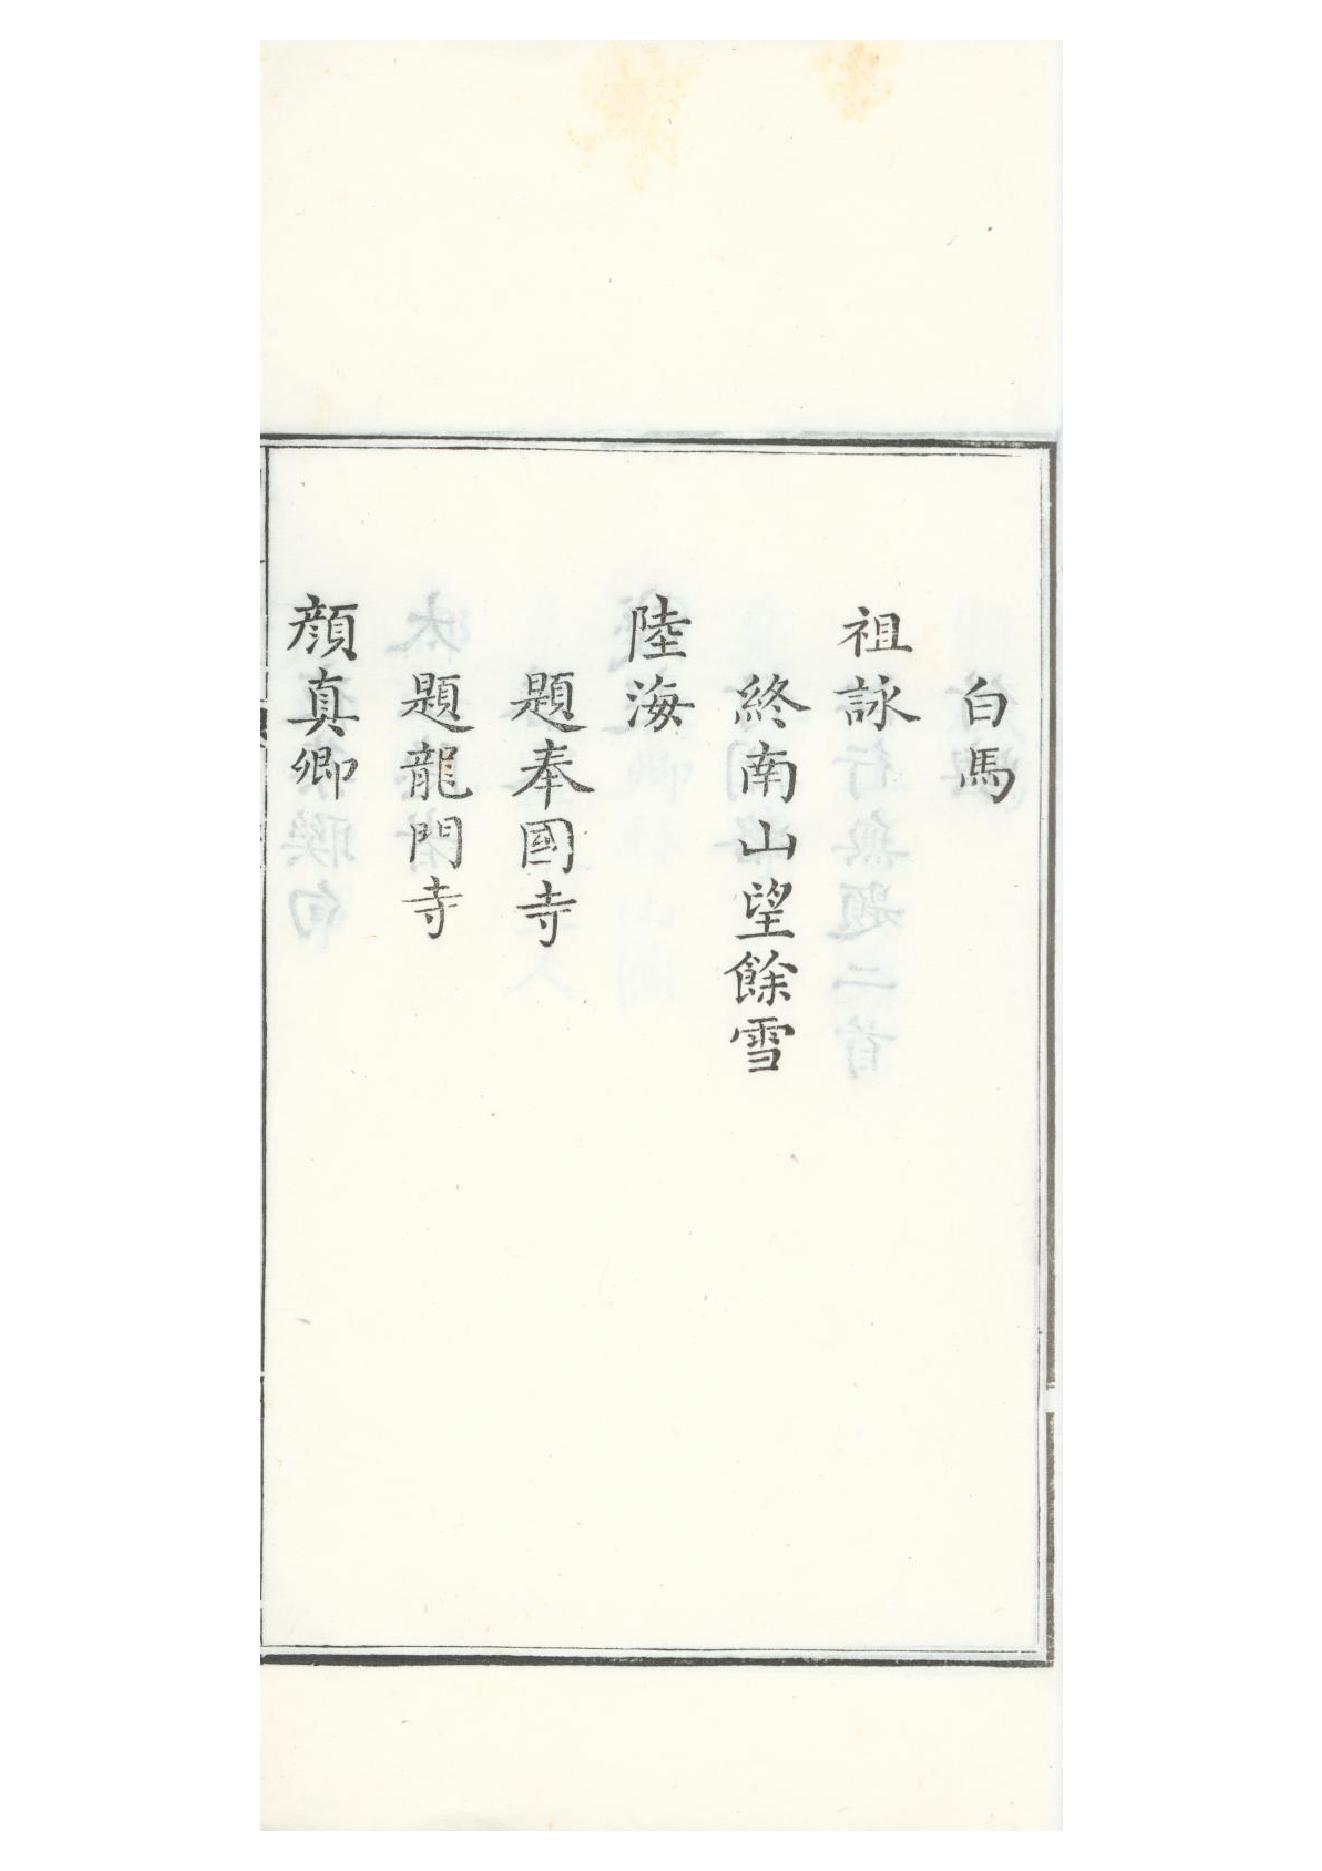 白馬
祖詠
終南山望餘雪
陸海
題奉國寺
題龍門寺
顏真卿